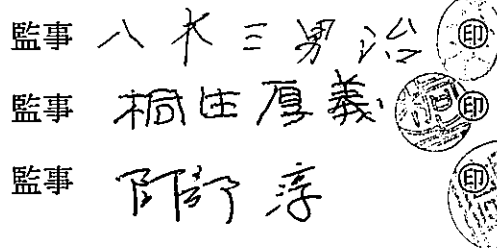 監事 八木三男治 印
監事 桐生厚義 印
監事 阿部淳 印